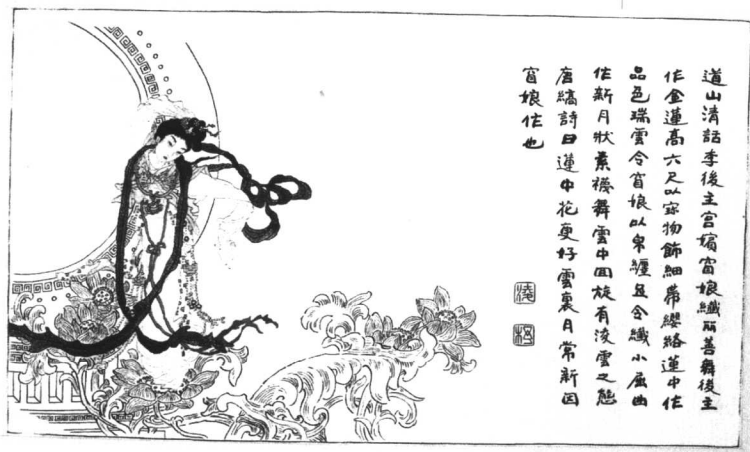 道山清話李後主宮嬪窅娘纖丽善舞後主
作金蓮高六尺以寳物飾細帶纓絡蓮中作
品色瑞雲令窅娘以帛纏足令纖小屈曲
作新月狀素襪舞雲中回旋有凌雲之態
唐縞詩曰蓮中花更好雲裏月常新因
窅娘作也